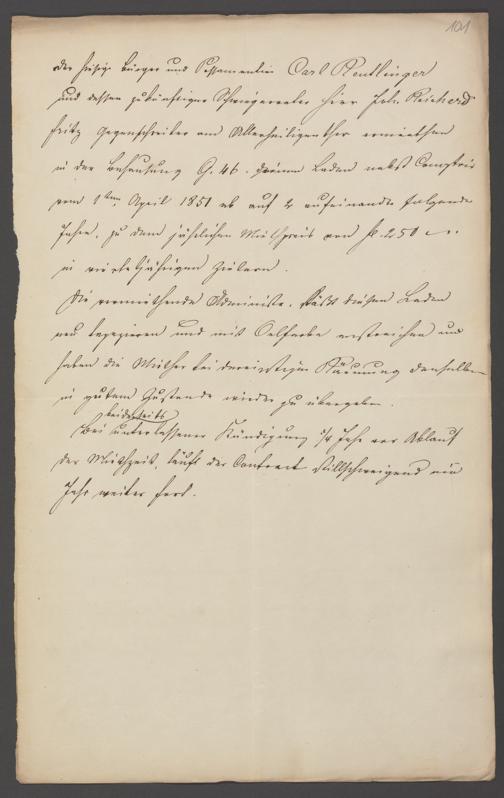 101
Der hiesige Bürger und Posamentier Carl Reutlinger
und dessen zukünftiger Schwiegervater Herr Joh. Reichard
Fritz Gegenschreiber am Allerheiligenthor ermiethen
in der Behausung G. 46. Laden nebst Comptoir
vom 1ten April 1851 ab auf 2 aufeinander folgende
Jahre, zu dem jährlichen Miethpreis von fl. 250
in vierteljährigen Zielern.
Die vermiethende Administr. läßt diesen Laden
neu tapezieren und mit Oelfarbe anstreichen und
haben die Miether bei dereinstiger Räumung denselben
in gutem Zustande wieder zu übergeben.
beiderseits
Bei unterlassener Kündigung 1/4 Jahr vor Ablauf
der Miethzeit, läuft der Contract stillschweigend ein
Jahr weiter fort.